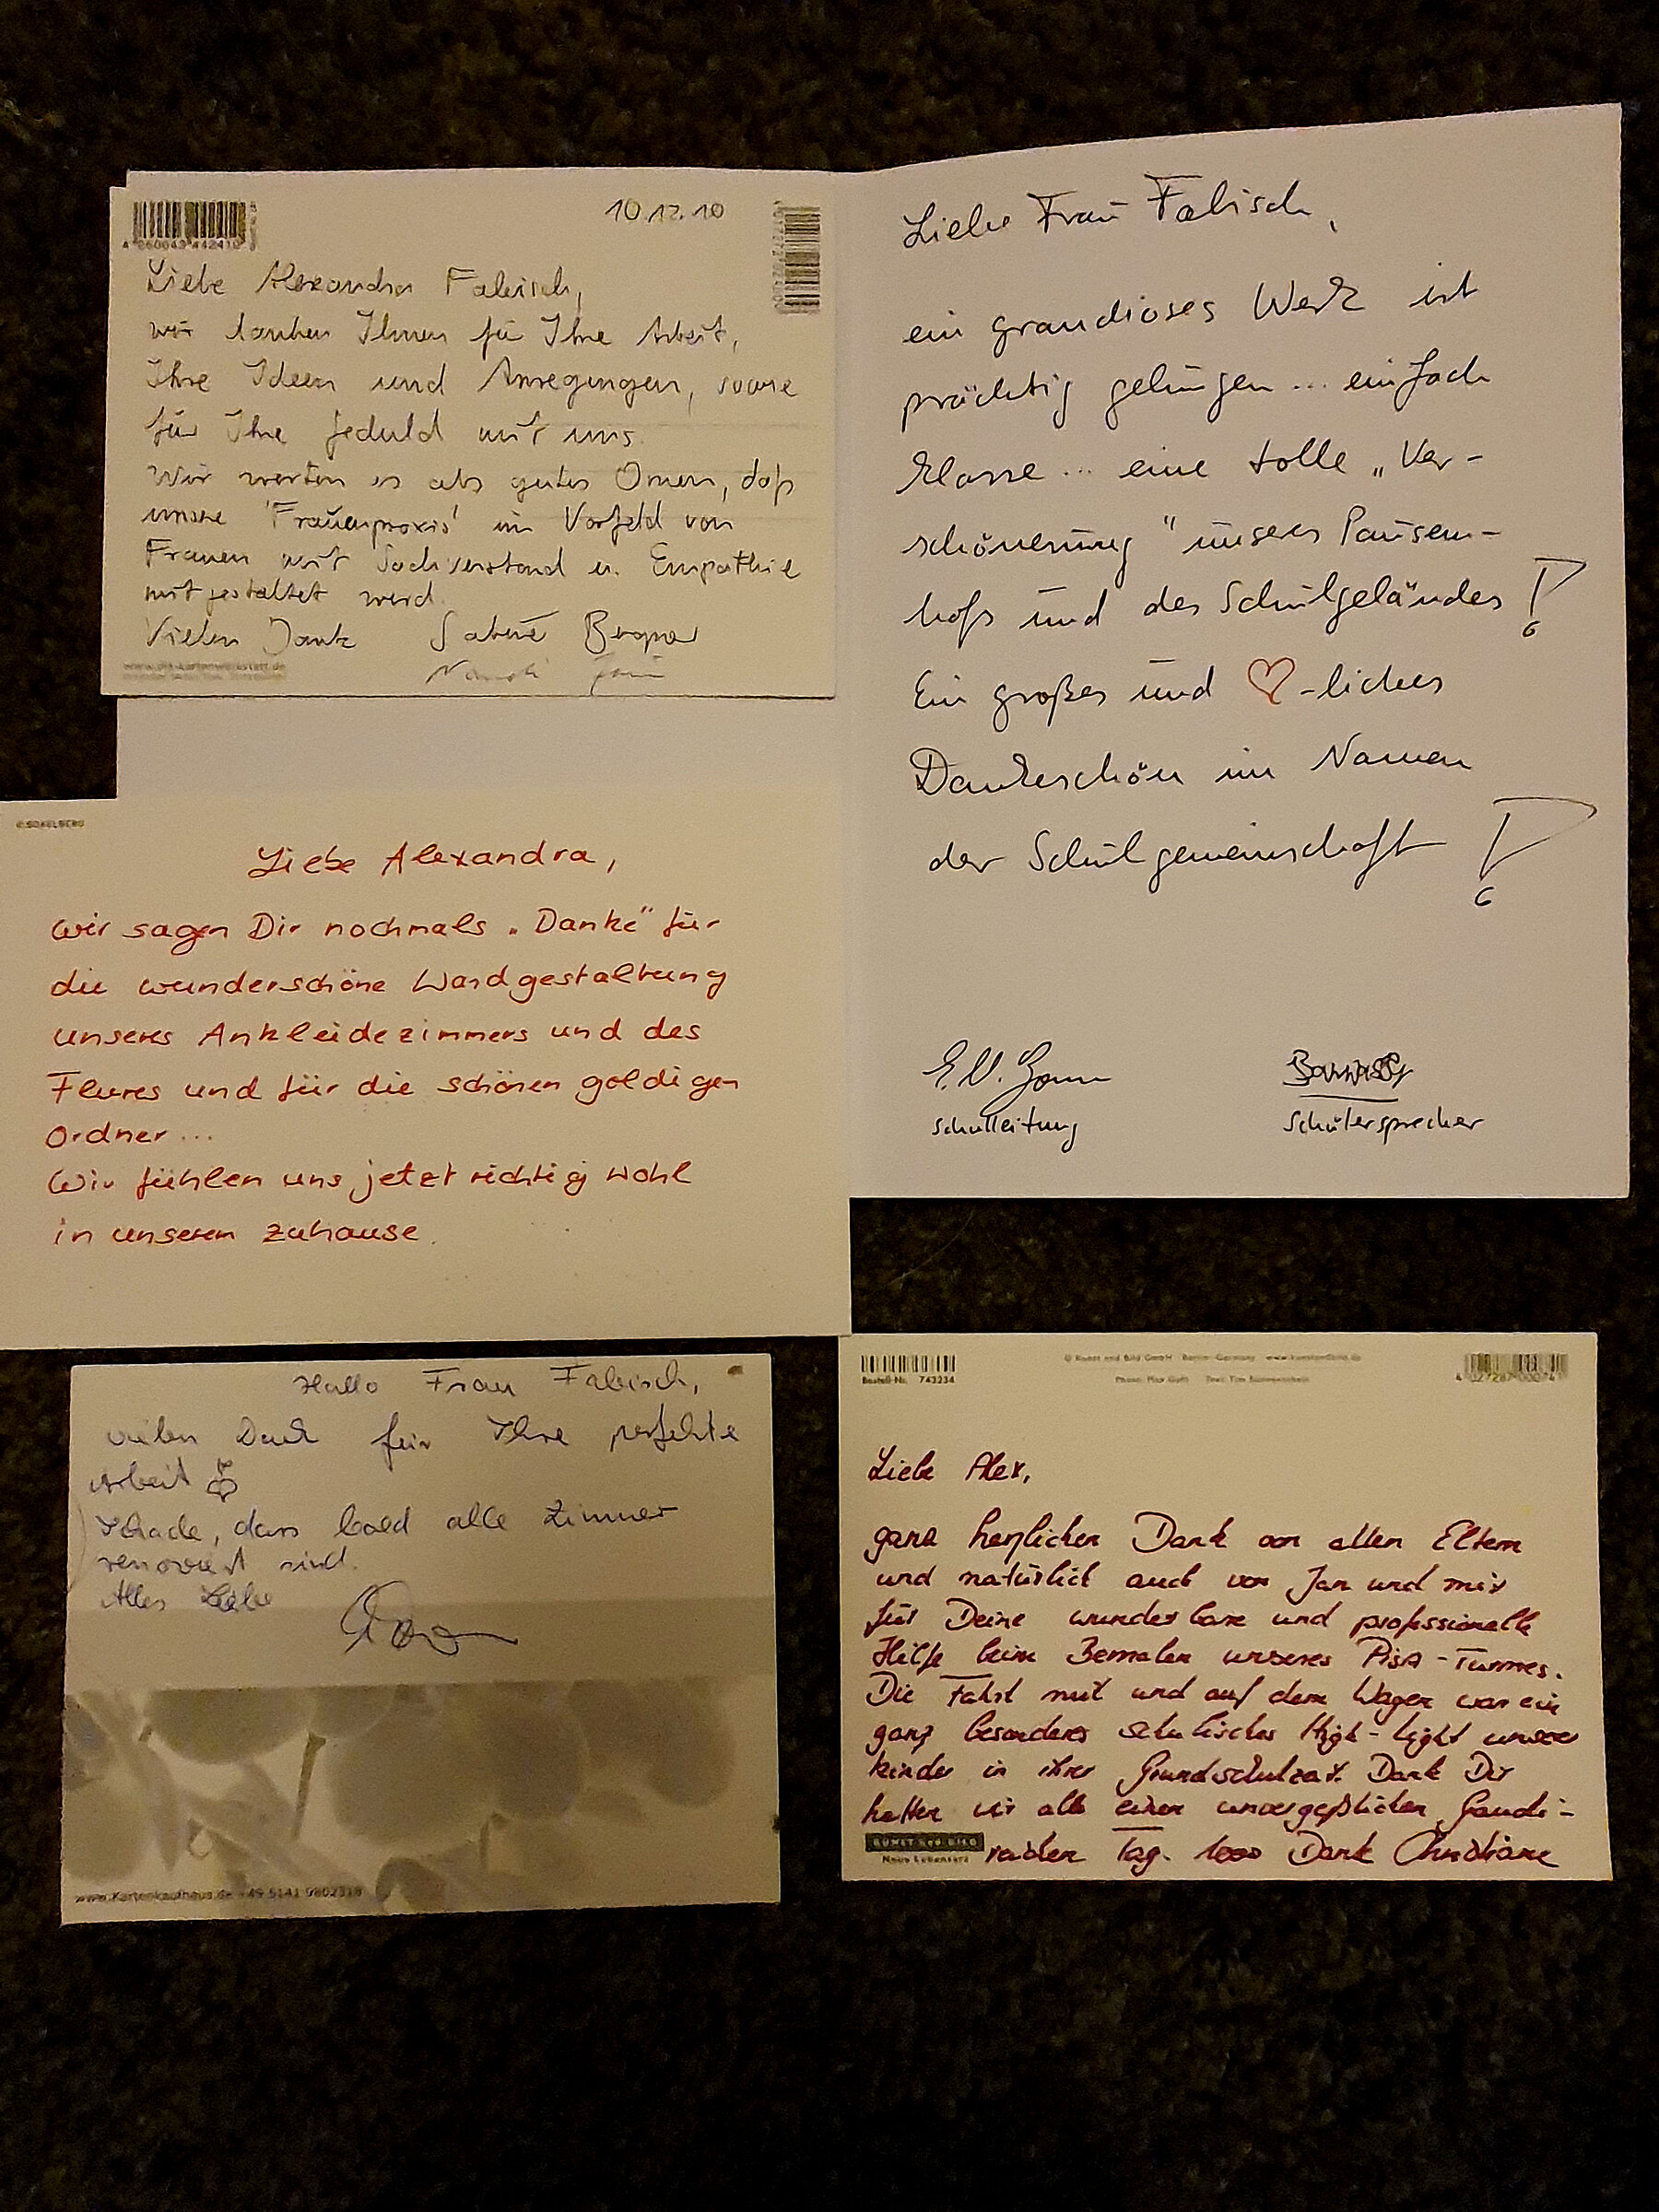 10.12.10
Liebe Alexandra Fabisch,
wir danken Ihnen für Ihre Arbeit,
Ihre Ideen und Anregungen, sowie
für Ihre Geduld mit uns.
Wir werten es als gutes Omen, daß
unsere 'Frauenpraxis' im Vorfeld von
Frauen mit Sachverstand u. Empathie
mitgestaltet wird.
Vielen Dank Sabine
www.die-kartenwerkstatt.de
Liebe Frau Fabisch,
ein grandioses Werk ist
prächtig gelungen ... einfach
klasse ... eine tolle „Ver-
schönerung" unseres Pausen-
hofs und des Schulgeländes !
Ein großes und ♡-liches
Dankeschön im Namen
der Schulgemeinschaft !
Schulleitung Schülersprecher
Liebe Alexandra,
wir sagen Dir nochmals „Danke" für
die wunderschöne Wandgestaltung
unseres Ankleidezimmers und des
Flures und für die schönen goldigen
Ordner ...
Wir fühlen uns jetzt richtig wohl
in unserem zuhause.
Hallo Frau Fabisch,
vielen Dank für Ihre perfekte
Arbeit
Schade, dass bald alle Zimmer
renoviert sind.
Alles Liebe
www.Kartenkaufhaus.de +49 5141 9802318
© Kunst und Bild GmHH Berlin-Germany www.kunstundbild.de
Bestell-Nr. 743234
Liebe Alex,
ganz herzlichen Dank von allen Eltern
und natürlich auch von Jan und mir
für Deine wunderbare und professionelle
Hilfe beim Bemalen unseres Pisa-Turmes.
Die Fahrt mit und auf dem Wagen war ein
ganz besonderes schulisches High-light unserer
Kinder in ihrer Grundschulzeit. Dank Dir
hatten wir alle einen unvergeßlichen Gaudi-
KUNST und BILD
rablen Tag. 1000 Dank Christiane